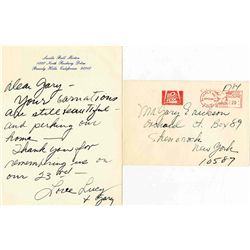 Lucille Ball Morton
1000 North Roxbury Drive
Beverly Hills, California 90210
Dear Gary -
Your carnations
are still beautiful -
and perking our
home -
Thank you for
remembering us on
our 23rd
Love Lucy
+ Gary
Mr Gary Erickson
Orchard St. Box 89
Shenorock
New York
10587